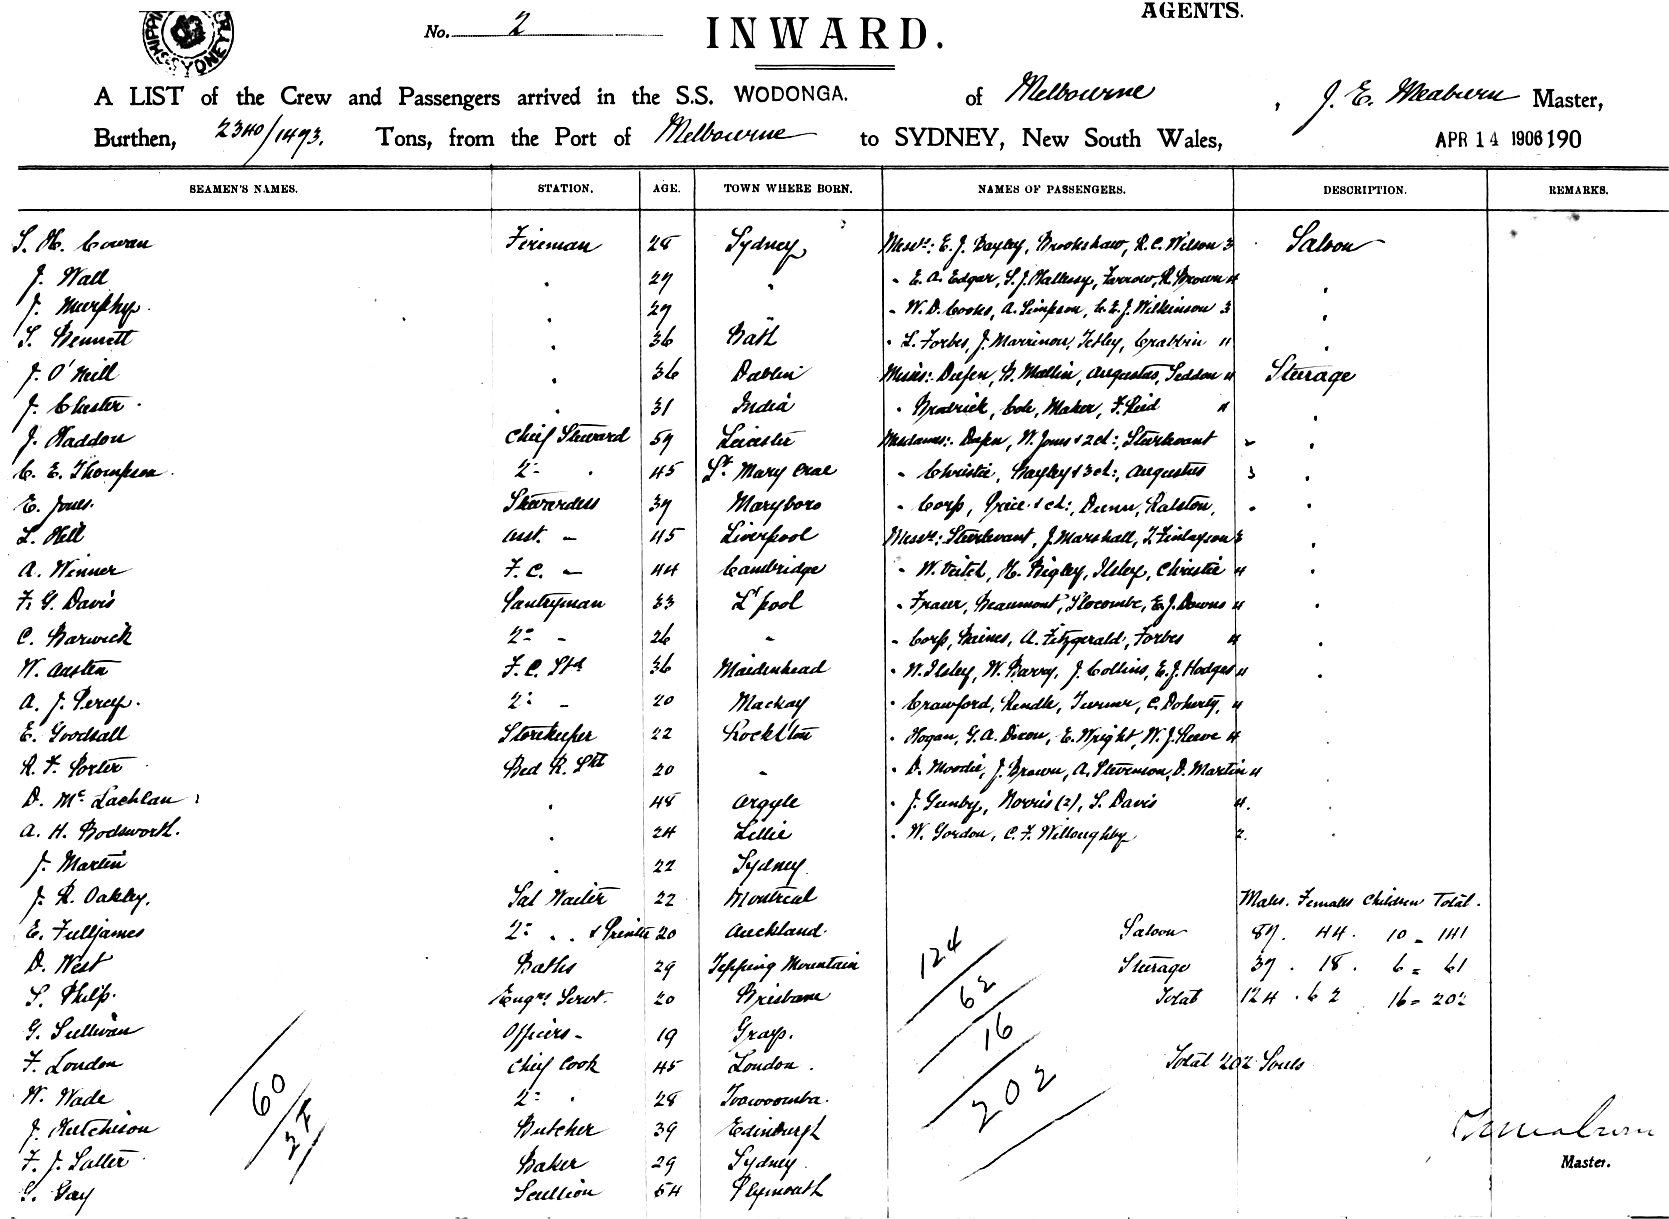 AGENTS.
No. 2 INWARD.
A LIST of the Crew and Passengers arrived in the S.S. WODONGA. of Melbourne, J. E. Meaburn Master,
Burthen, 2340/1493. Tons, from the Port of Melbourne to SYDNEY, New South Wales, APR 14 1906 190
SEAMEN'S NAMES. STATION. AGE. TOWN WHERE BORN. NAMES OF PASSENGERS. DESCRIPTION. REMARKS.
S. H. Cowan Fireman 28 Sydney Messrs: E. J. Bayley, Brookshaw, R. C. Wilson 3 Saloon
J. Wall " 29 " " E. A. Edgar, Farrow, R. Brown 4 "
J. Murphy " 29 " " W. D. Cooks, A. Simpson, C. E. J. Wilkinson 3 "
S. Bennett " 36 Bath " L. Forbes, J. Marrinon, Tetley, Crabbin 4 "
J. O'Neill " 36 Dublin Misses: B. Mallin, Augustus, Seddon 4 Steerage
J. Chester " 31 India " Brodrick, Cole, Maker, F. Reid 4 "
J. Haddon Chief Steward 59 Leicester Mesdames: W. Jones & 2 ch:, Sturtevant "
C. E. Thompson 2nd " 45 St. Mary Cray " Christie, Bayley & 3 ch:, Augustus 3 "
E. Jones. Stewardess 39 Maryboro " Corp, Grice & ch:, Dunn, Ralston, "
L. Hill Asst. " 45 Liverpool Messrs: Sturtevant, J. Marshall, T. Finlayson 3 "
A. Winner F. C. " 44 Cambridge " W. Veitch, H. Bigley, Ilsley, Christie 4 "
F. G. Davis Pantryman 33 L'pool " Fraser, Beaumont, Slocombe, E. J. Downs 4 "
C. Barwick 2nd " 26 " " Corp, Baines, A. Fitzgerald, Forbes 4 "
W. Austen F. C. Std 36 Maidenhead " W. Ilsley, W. Barry, J. Collins, E. J. Hodges 4 "
A. J. Percy. 2nd " 20 Mackay " Crawford, Rendle, Turner, C. Doherty, 4
E. Goodsall Storekeeper 22 Rock'ton " Hogan, G. A. Dixon, E. Wright, W. J. Reeve 4
R. F. Porter Bed R. Std 20 " " D. Moodie, J. Brown, A. Stevenson, D. Martin 4
D. McLachlan " 48 Argyle " J. Gunby, Norris (2), S. Davis 4.
A. H. Bodsworth. " 24 Lillie " W. Gordon, C. F. Willoughby 2.
J. Martin " 22 Sydney
J. R. Oakley. Sal Waiter 22 Montreal Males. Females Children Total.
E. Fulljames 2nd " " & Printer 20 Auckland. Saloon 87. 44. 10 = 141
D. West Baths 29 Tepping Mountain 124 Steerage 37. 18. 6 = 61
S. Philp. Engrs Servt. 20 Brisbane 62 Total 124. 62 16 = 202
G. Sullivan Officers " 19 Grays. 16
F. London Chief Cook 45 London. Total 202 Souls
W. Wade 60 2nd " 28 Toowoomba. 202
J. Hutchison Butcher 39 Edinburgh
F. J. Salter Baker 29 Sydney Master.
G. Gay Scullion 54 Plymouth